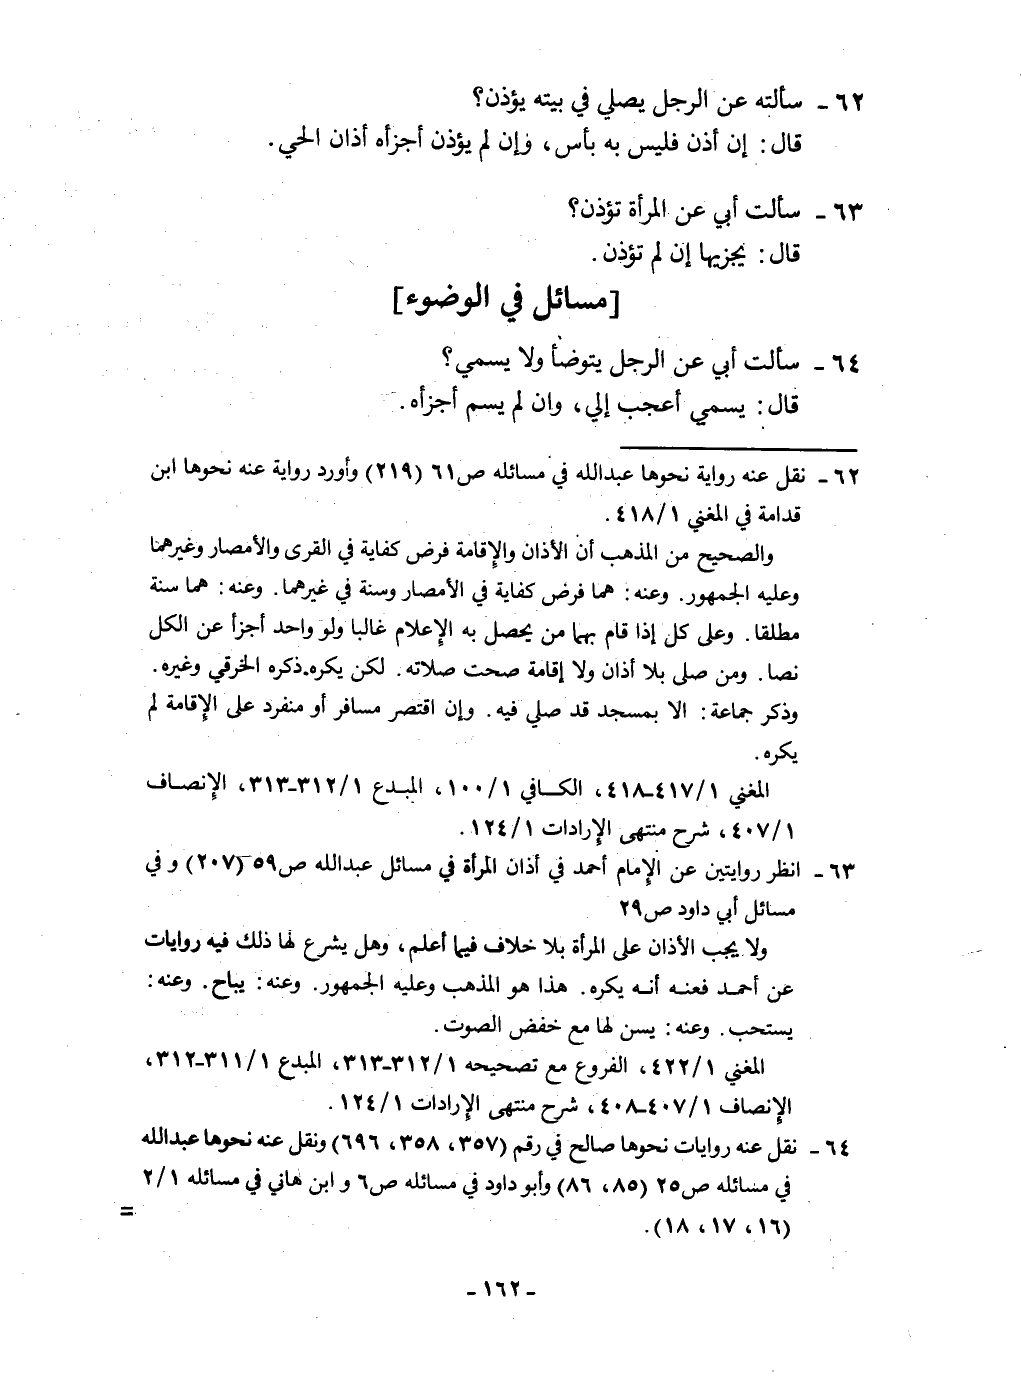 ٦٢ - سألته عن الرجل يصلي في بيته يؤذن؟
قال: إن أذن فليس به بأس، وإن لم يؤذن أجزأه أذان الحي.
٦٣ - سألت أبي عن المرأة تؤذن؟
قال: يجزيها إن لم تؤذن.
[مسائل في الوضوء]
٦٤ - سألت أبي عن الرجل يتوضأ ولا يسمي؟
قال: يسمي أعجب إلي، وان لم يسم أجزأه.
٦٢ - نقل عنه رواية نحوها عبدالله في مسائله ص٦١ (٢١٩) وأورد رواية عنه نحوها ابن
قدامة في المغني ٤١٨/١.
والصحيح من المذهب أن الأذان والإقامة فرض كفاية في القرى والأمصار وغيرهما
وعليه الجمهور. وعنه: هما فرض كفاية في الأمصار وسنة في غيرهما. وعنه: هما سنة
مطلقا. وعلى كل إذا قام بهما من يحصل به الإعلام غالبا ولو واحد أجزأ عن الكل
نصا. ومن صلى بلا أذان ولا إقامة صحت صلاته. لكن يكره.ذكره الخرقي وغيره.
وذكر جماعة: الا بمسجد قد صلي فيه. وإن اقتصر مسافر أو منفرد على الإقامة لم
يكره.
المغني ٤١٧/١-٤١٨، الكافي ١٠٠/١، المبدع ٣١٢/١-٣١٣، الإنصاف
٤٠٧/١، شرح منتهى الإرادات ١٢٤/١.
٦٣ - انظر روايتين عن الإمام أحمد في أذان المرأة في مسائل عبدالله ص٥٩ (٢٠٧) و في
مسائل أبي داود ص٢٩
ولا يجب الأذان على المرأة بلا خلاف فيما أعلم، وهل يشرع لها ذلك فيه روايات
عن أحمد فعنه أنه يكره. هذا هو المذهب وعليه الجمهور. وعنه: يباح. وعنه:
يستحب. وعنه: يسن لها مع خفض الصوت.
المغني ٤٢٢/١، الفروع مع تصحيحه ٣١٢/١-٣١٣، المبدع ٣١١/١-٣١٢،
الإنصاف ٤٠٧/١-٤٠٨، شرح منتهى الإرادات ١٢٤/١.
٦٤ - نقل عنه روايات نحوها صالح في رقم (٣٥٧، ٣٥٨، ٦٩٦) ونقل عنه نحوها عبدالله
في مسائله ص٢٥ (٨٥، ٨٦) وأبو داود في مسائله ص٦ و ابن هاني في مسائله ٢/١
(١٦، ١٧، ١٨).
=
- ١٦٢ -